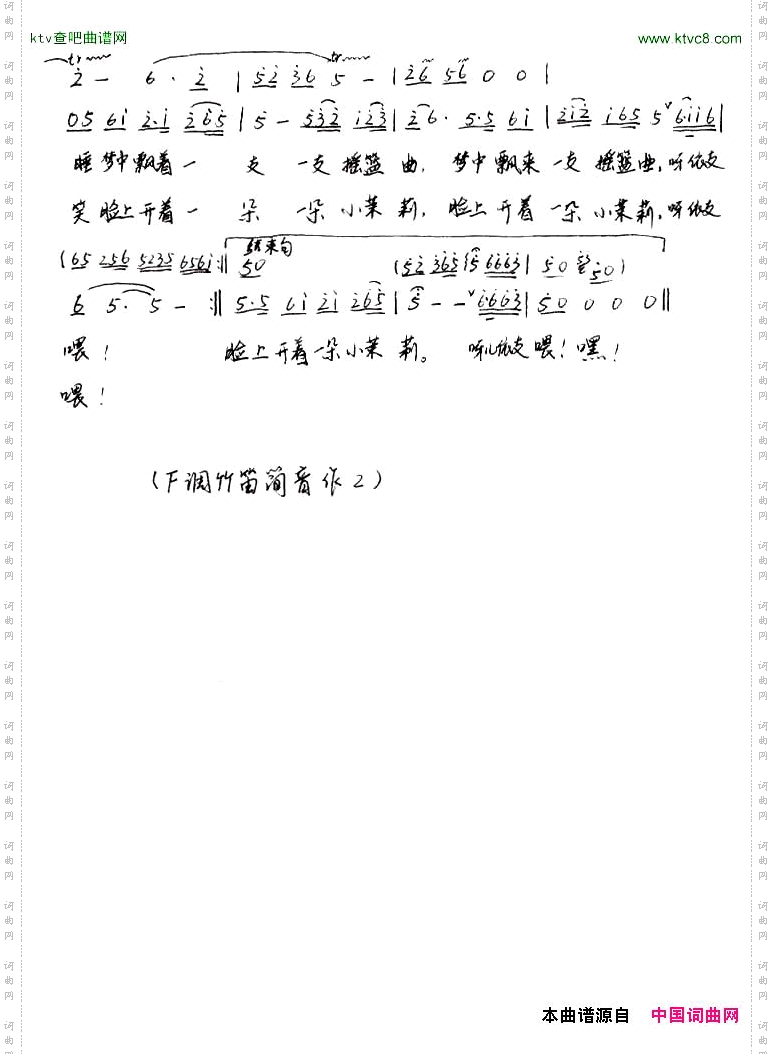 ktv查吧曲谱网 www.ktvc8.com
tr tr
2 – 6 · 2 | 52 36 5 – | 26 56 0 0 |
05 61 2·1 265 | 5 – 532 123 | 26· 5·5 61 | 212 165 5 6116 |
睡梦中飘着一 支 一支 摇篮 曲, 梦中飘来 一支 摇篮曲,呀依支
笑脸上开着一 朵 一朵 小茉 莉, 脸上 开着 一朵 小茉莉,呀依支
结束句
(65 256 5235 6561 :‖ 50 (52 365 (5 6663 | 50 50)
6 5· 5 – :‖ 5·5 61 21 265 | 5 – – 6663 | 50 0 0 0 ‖
喂! 脸上开着一朵小茉 莉。 呀儿依支 喂!嘿!
喂!
(F调竹笛筒音作2)
本曲谱源自 中国词曲网